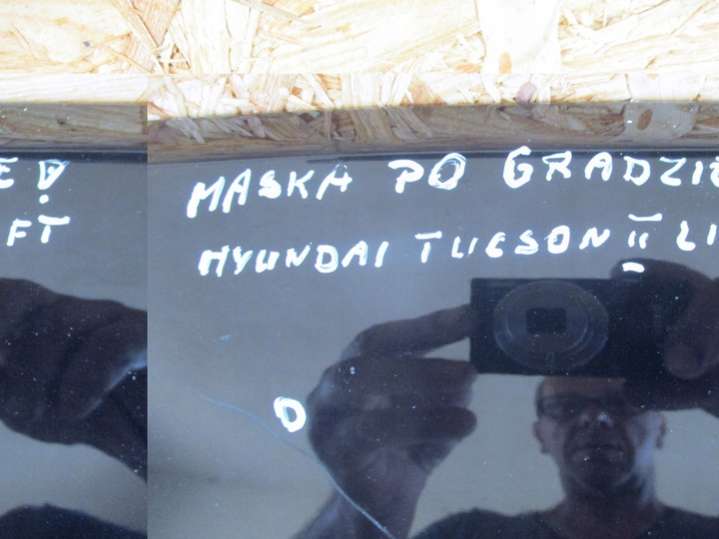 MASKA PO GRADZIE
HYUNDAI TUCSON II LI
FT
O